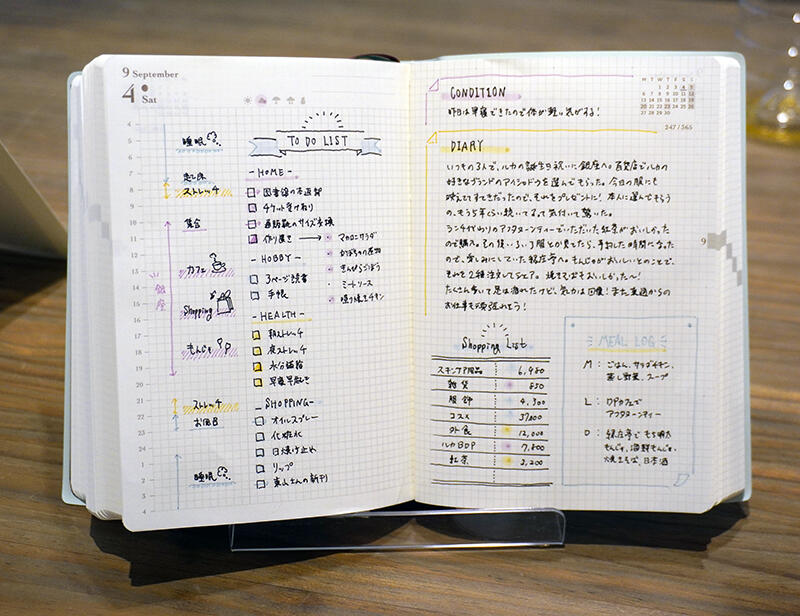 9 September
4 Sat
4
5
6
7
8
9
10
11
12
13
14
15
16
17
18
19
20
21
22
23
24
1
2
3
4
睡眠
起床
ストレッチ
集合
銀座
カフェ
Shopping
もんじゃ
ストレッチ
お風呂
睡眠
TO DO LIST
-HOME-
図書館の本返却
チケット受け取り
作り置き → マカロニサラダ
かぼちゃの煮物
きんぴらごぼう
ミートソース
照り焼きチキン
-HOBBY-
3ページ読書
手帳
-HEALTH-
朝ストレッチ
夜ストレッチ
水分補給
早寝早起き
-SHOPPING-
オイルスプレー
化粧水
日焼け止め
リップ
東山さんの新刊
CONDITION
昨日は早寝できたので体が軽い気がする!
M T W T F S S
1 2 3 4 5
6 7 8 9 10 11 12
13 14 15 16 17 18 19
20 21 22 23 24 25 26
27 28 29 30
247/365
DIARY
いつもの3人で、ルカの誕生日祝いに銀座へ。百貨店でルカの
好きなブランドのアイシャドウを選んでもらった。今日の服にも
映えてすてきだったので、それをプレゼントに! 本人に選んでもらう
の、もう5年くらい続いてるって気付いて驚いた。
ランチ代わりのアフタヌーンティーでいただいた紅茶がおいしかった
ので購入。その後いろいろ服とか見てたら、予約した時間になった
ので、楽しみにしていた緑庄亭へ。もんじゃがおいしいとのことで、
それを2種注文してシェア。焼きそばもおいしかった〜!
たくさん歩いて足は疲れたけど、気力は回復! また来週からの
お仕事も頑張れそう!
9
Shopping List
スキンケア用品 6,980
雑貨 850
服飾 4,300
コスメ 37,800
外食 12,000
ルカBDP 7,800
紅茶 2,200
MEAL LOG
M: ごはん、サラダチキン、
蒸し野菜、スープ
L: DPカフェで
アフタヌーンティー
D: 緑庄亭で もち明太
もんじゃ、海鮮もんじゃ、
焼きそば、日本酒